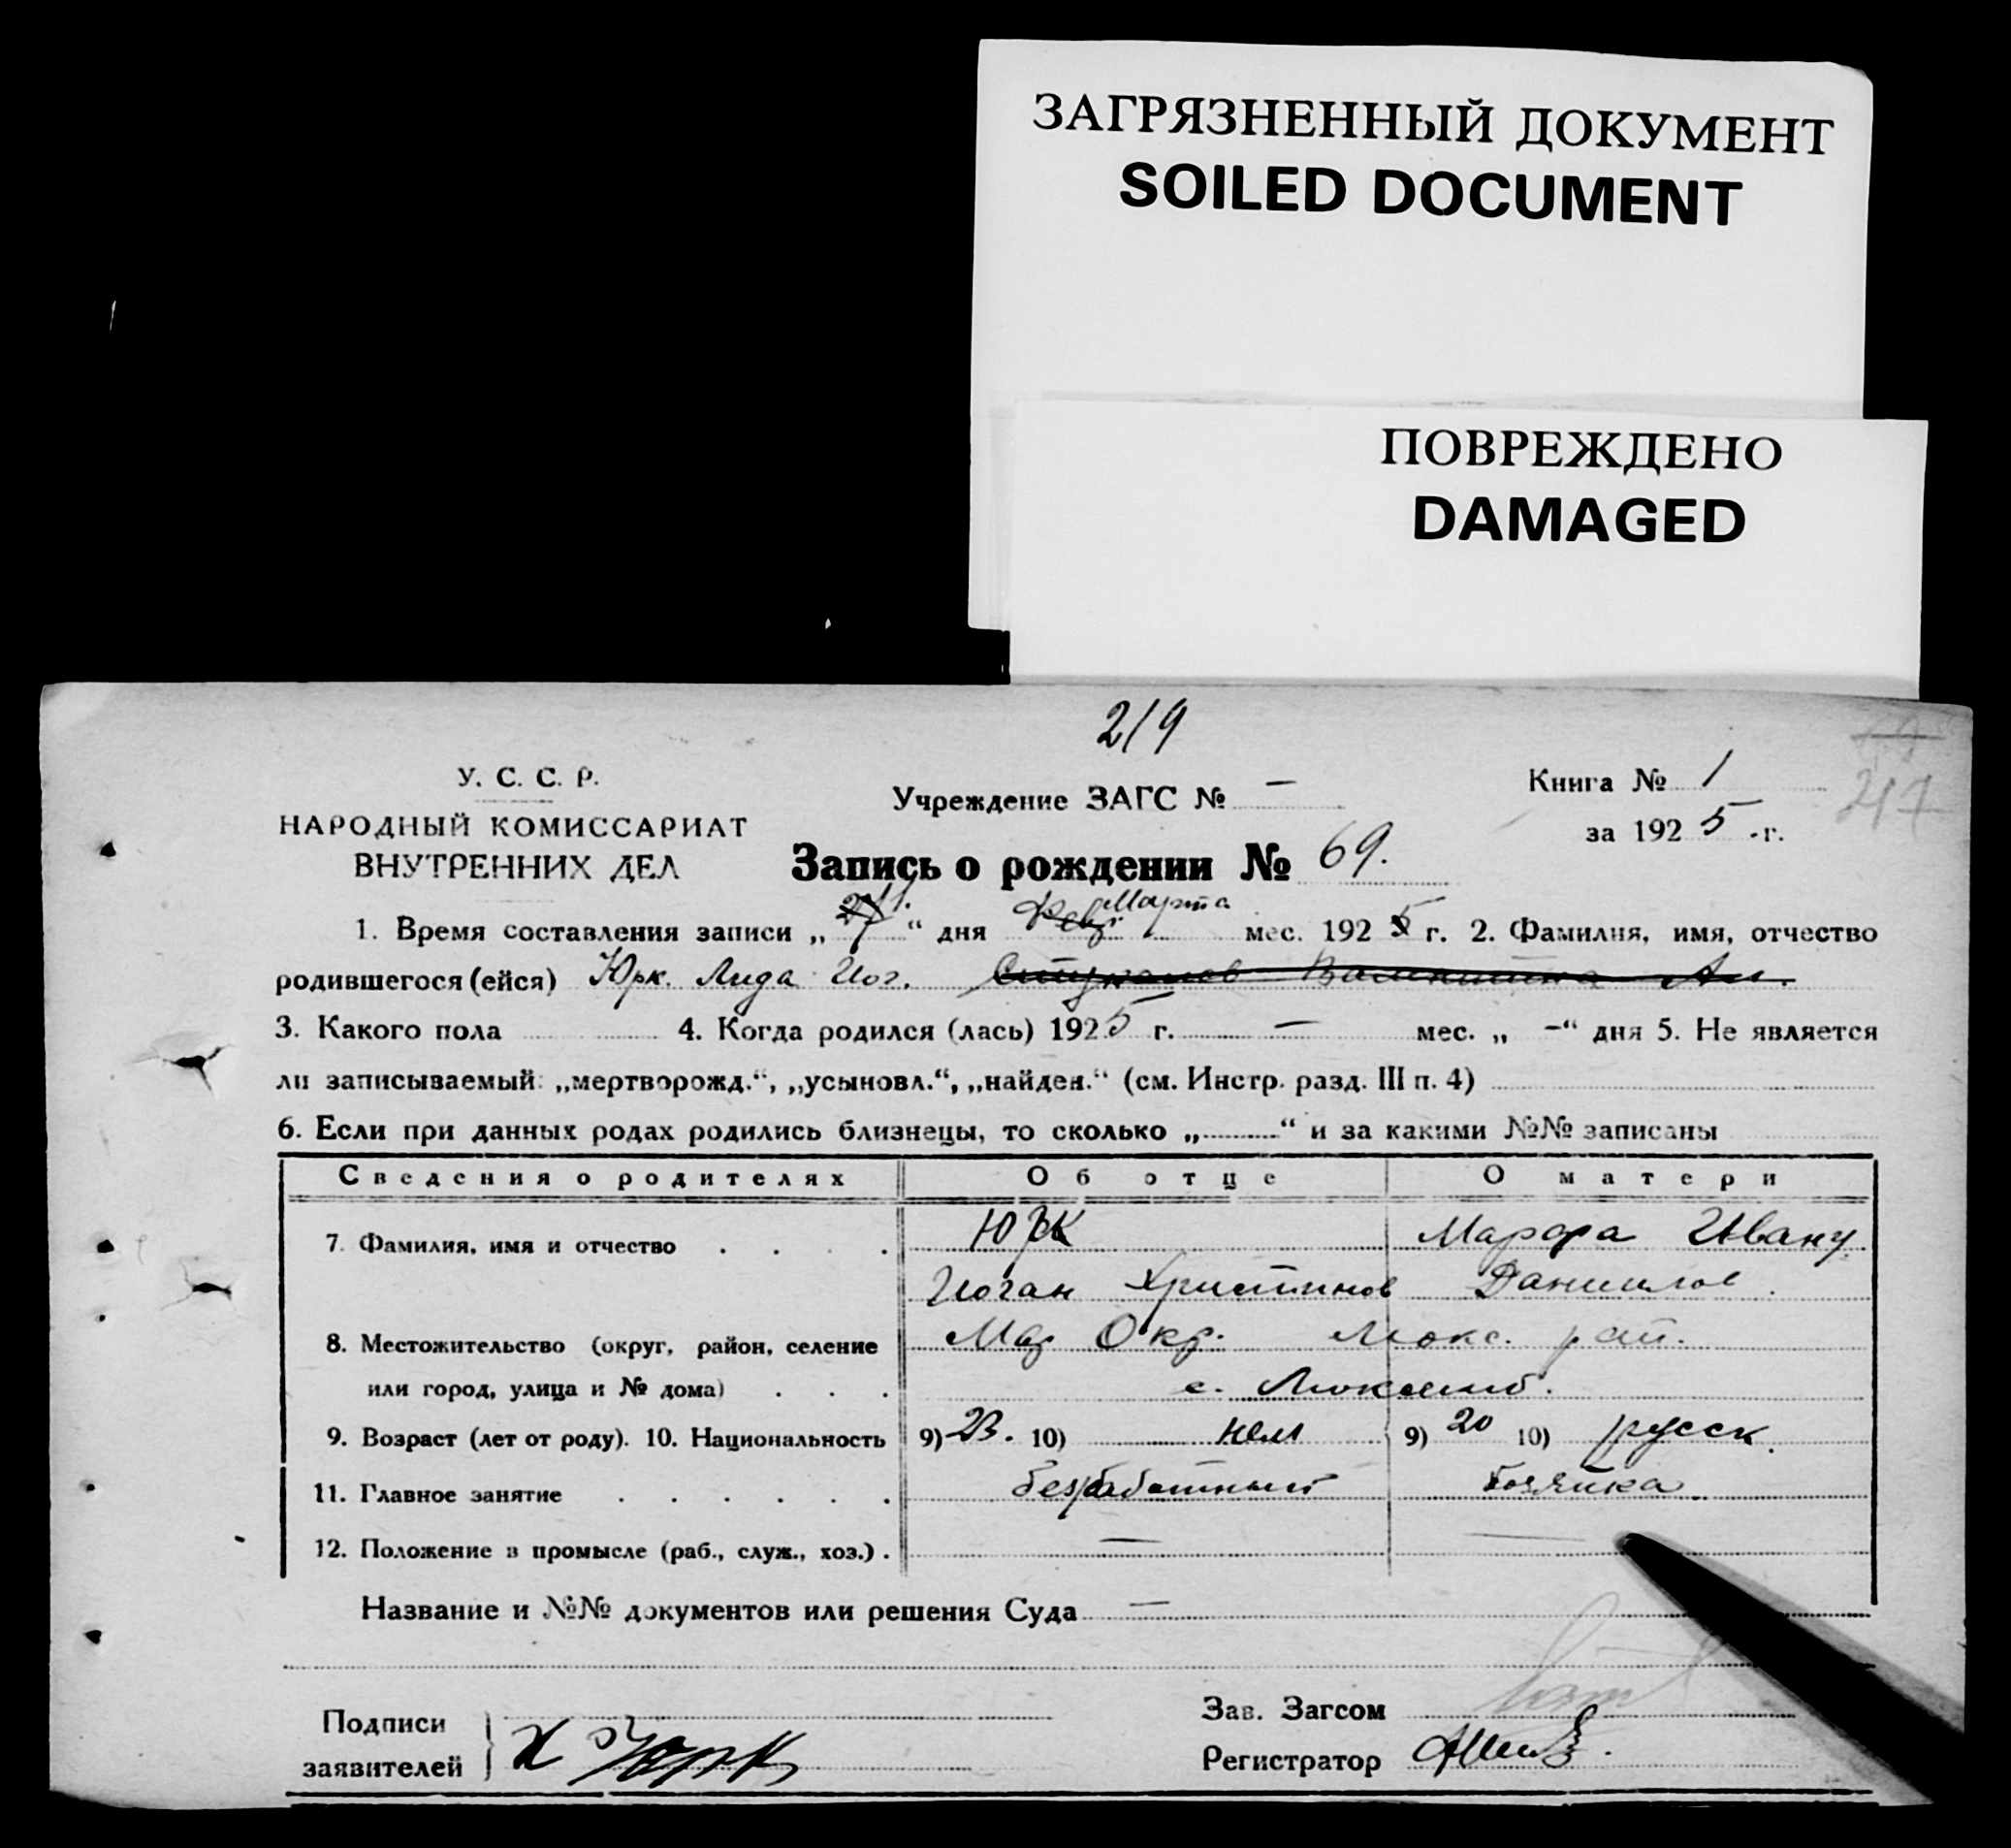 ЗАГРЯЗНЕННЫЙ ДОКУМЕНТ
SOILED DOCUMENT
ПОВРЕЖДЕНО
DAMAGED
219
У. С. С. Р.
НАРОДНЫЙ КОМИССАРИАТ
ВНУТРЕННИХ ДЕЛ
Учреждение ЗАГС № –
Книга № 1
за 1925 г.
217
Запись о рождении № 69.
1. Время составления записи „ 11. “ дня Марта мес. 1925 г. 2. Фамилия, имя, отчество
родившегося (ейся) Юрк. Лида Иог.
3. Какого пола 4. Когда родился (лась) 1925 г. – мес. „ –“ дня 5. Не является
ли записываемый: „мертворожд.“, „усыновл.“, „найден.“ (см. Инстр. разд. III п. 4)
6. Если при данных родах родились близнецы, то сколько „ “ и за какими №№ записаны
Сведения о родителях Об отце О матери
7. Фамилия, имя и отчество . . . . Юрк Марфа Ивану
Иоган Христинов Данилов.
8. Местожительство (округ, район, селение Окр. Люкс. рай.
или город, улица и № дома) . . . с. Люксемб.
9. Возраст (лет от роду). 10. Национальность 9) 23. 10) нем 9) 20 10) русск.
11. Главное занятие . . . . . . безработный
12. Положение в промысле (раб., служ., хоз.) . –
Название и №№ документов или решения Суда –
Подписи
заявителей
Х Юрк
Зав. Загсом
Регистратор